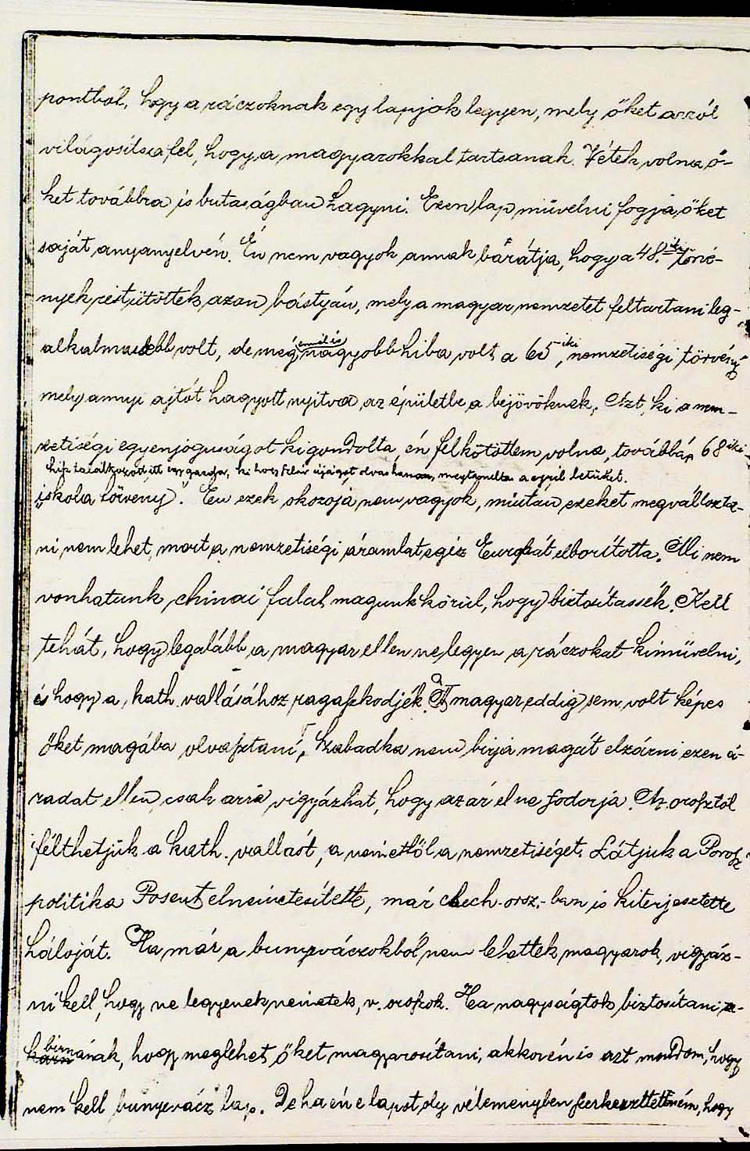 pontból, hogy a ráczoknak egy lapjok legyen, mely őket arról
világosítsa fel, hogy a magyarokkal tartsanak. Vétek volna ő-
ket továbbra is butaságban hagyni. Ezen lap művelni fogja őket
saját anyanyelvén. Én nem vagyok annak barátja, hogy a 48-iki törvé-
nyek rést ütöttek azon bástyán, mely a magyar nemzetet feltartani leg-
alkalmasabb volt, de még nagyobb hiba volt a 68-iki nemzetiségi törvény
mely annyi ajtót hagyott nyitva az épületbe a bejövőknek. Azt, ki a nem-
zetiségi egyenjoguságot kigondolta, én felkötöttem volna, továbbá 68 iki
találkozott itt egy gazda, ki hogy újságot olvashasson, megtanulta a cyril betűket.
iskola törvény. Én ezek okozója nem vagyok, miután ezeket megváltozta-
ni nem lehet, mert a nemzetiségi áramlat egész Európát elborította. Mi nem
vonhatunk chinai falat magunk körül, hogy biztosítassék. Kell
tehát, hogy legalább a magyar ellen ne legyen a ráczokat kiművelni,
és hogy a kath. vallásához ragaszkodjék. A magyar eddig sem volt képes
őket magába olvasztani, Szabadka nem birja magát elzárni ezen á-
radat ellen, csak arra vigyázhat, hogy az ár el ne sodorja. Az orosztól
félthetjük a kath. vallást, a némettől a nemzetiséget. Látjuk a Porosz
politika Posent elnémetesítette, már chech-orsz.-ban is kiterjesztette
hálóját. Ha már a bunyeváczokból nem lehettek magyarok, vigyáz-
ni kell, hogy ne legyenek németek, v. oroszok. Ha nagyságtok biztosítani
birnának, hogy meglehet őket magyarosítani, akkor én is azt mondom, hogy
nem kell bunyevácz lap. De ha én e lapot oly véleményben szerkeszteném, hogy